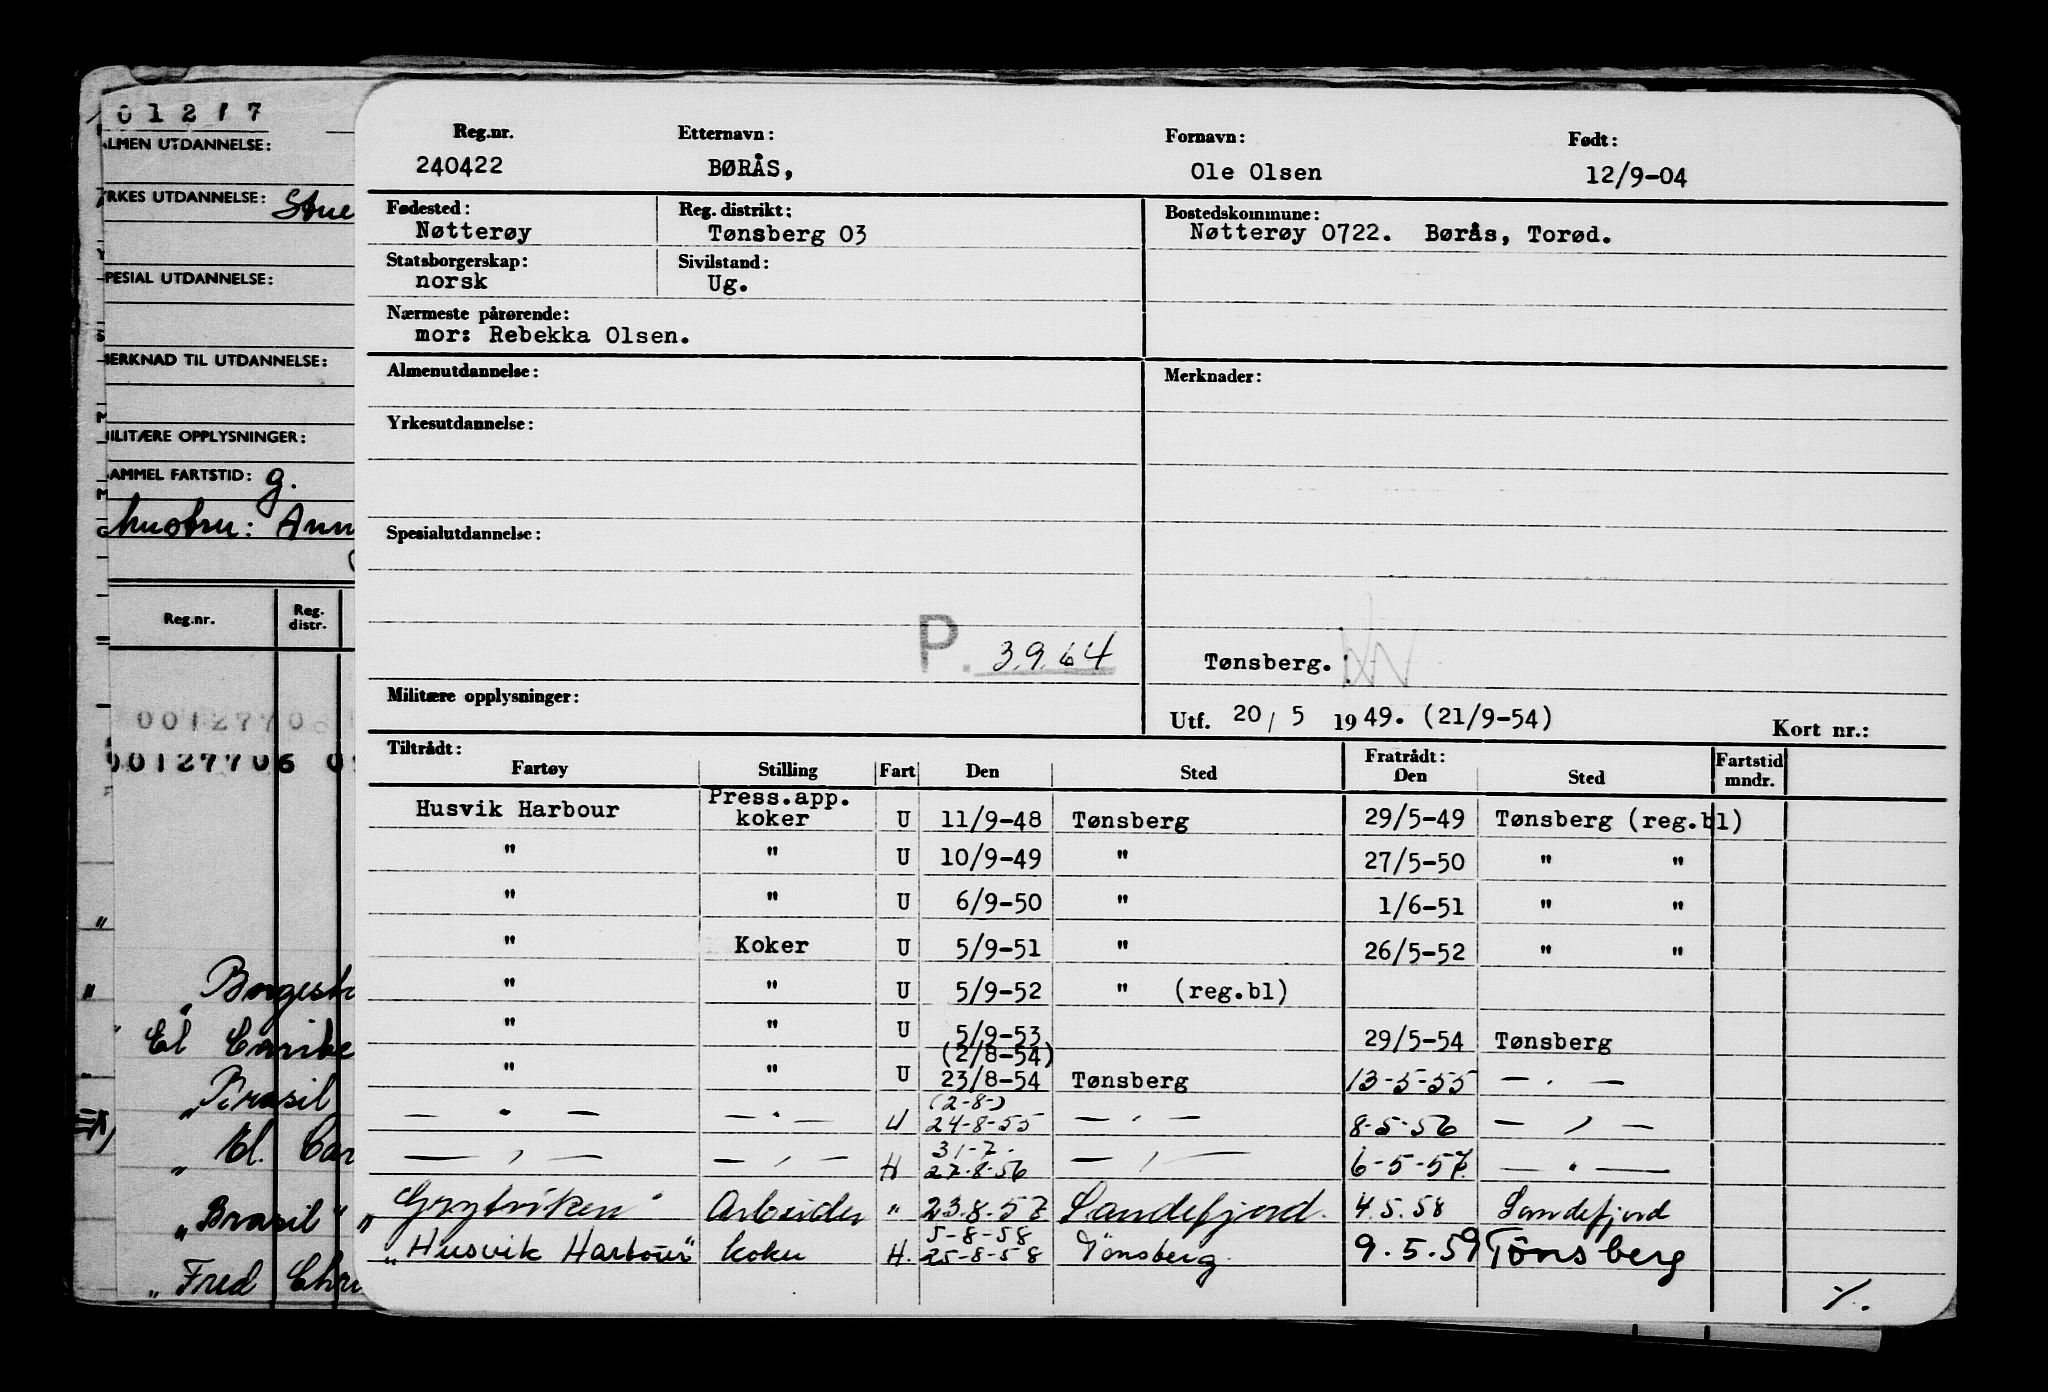 01217
ALMEN UTDANNELSE:
YRKES UTDANNELSE: Stue
SPESIAL UTDANNELSE:
MERKNAD TIL UTDANNELSE:
MILITÆRE OPPLYSNINGER:
GAMMEL FARTSTID: g.
hustru: Ann
Reg.nr. Reg. distr.
00127706
00127706 0
Borgest
El Caribe
„Brasil
„El. Car
„Brasil"
„Fred Chr
Reg.nr. Etternavn: Fornavn: Født:
240422 BØRÅS, Ole Olsen 12/9-04
Fødested: Reg. distrikt: Bostedskommune:
Nøtterøy Tønsberg 03 Nøtterøy 0722. Børås, Torød.
Statsborgerskap: Sivilstand:
norsk Ug.
Nærmeste pårørende:
mor: Rebekka Olsen.
Almenutdannelse: Merknader:
Yrkesutdannelse:
Spesialutdannelse:
P. 3.9.64 Tønsberg.
Militære opplysninger:
Utf. 20/ 5 1949. (21/9-54) Kort nr.:
Tiltrådt: Fratrådt: Fartstid
Fartøy Stilling Fart Den Sted Den Sted mndr.
Press.app.
Husvik Harbour koker U 11/9-48 Tønsberg 29/5-49 Tønsberg (reg.bl)
" " U 10/9-49 " 27/5-50 " "
" " U 6/9-50 " 1/6-51 " "
" Koker U 5/9-51 " 26/5-52 " "
" " U 5/9-52 " (reg.bl)
" " U 5/9-53 29/5-54 Tønsberg
(2/8-54)
" " U 23/8-54 Tønsberg 13-5-55 — . —
(2-8-)
— " — — " — U 24-8-55 — ' — 8-5-56 — ' —
31-7-
— ' — — ' — H 27-8-56 — ' — 6-5-57. — " —
„Grytviken" Arbeider " 23.8.57 Sandefjord. 4.5.58 Sandefjord
5-8-58
„Husvik Harbour" koker H. 25-8-58 Tønsberg. 9.5.59 Tønsberg
·/.